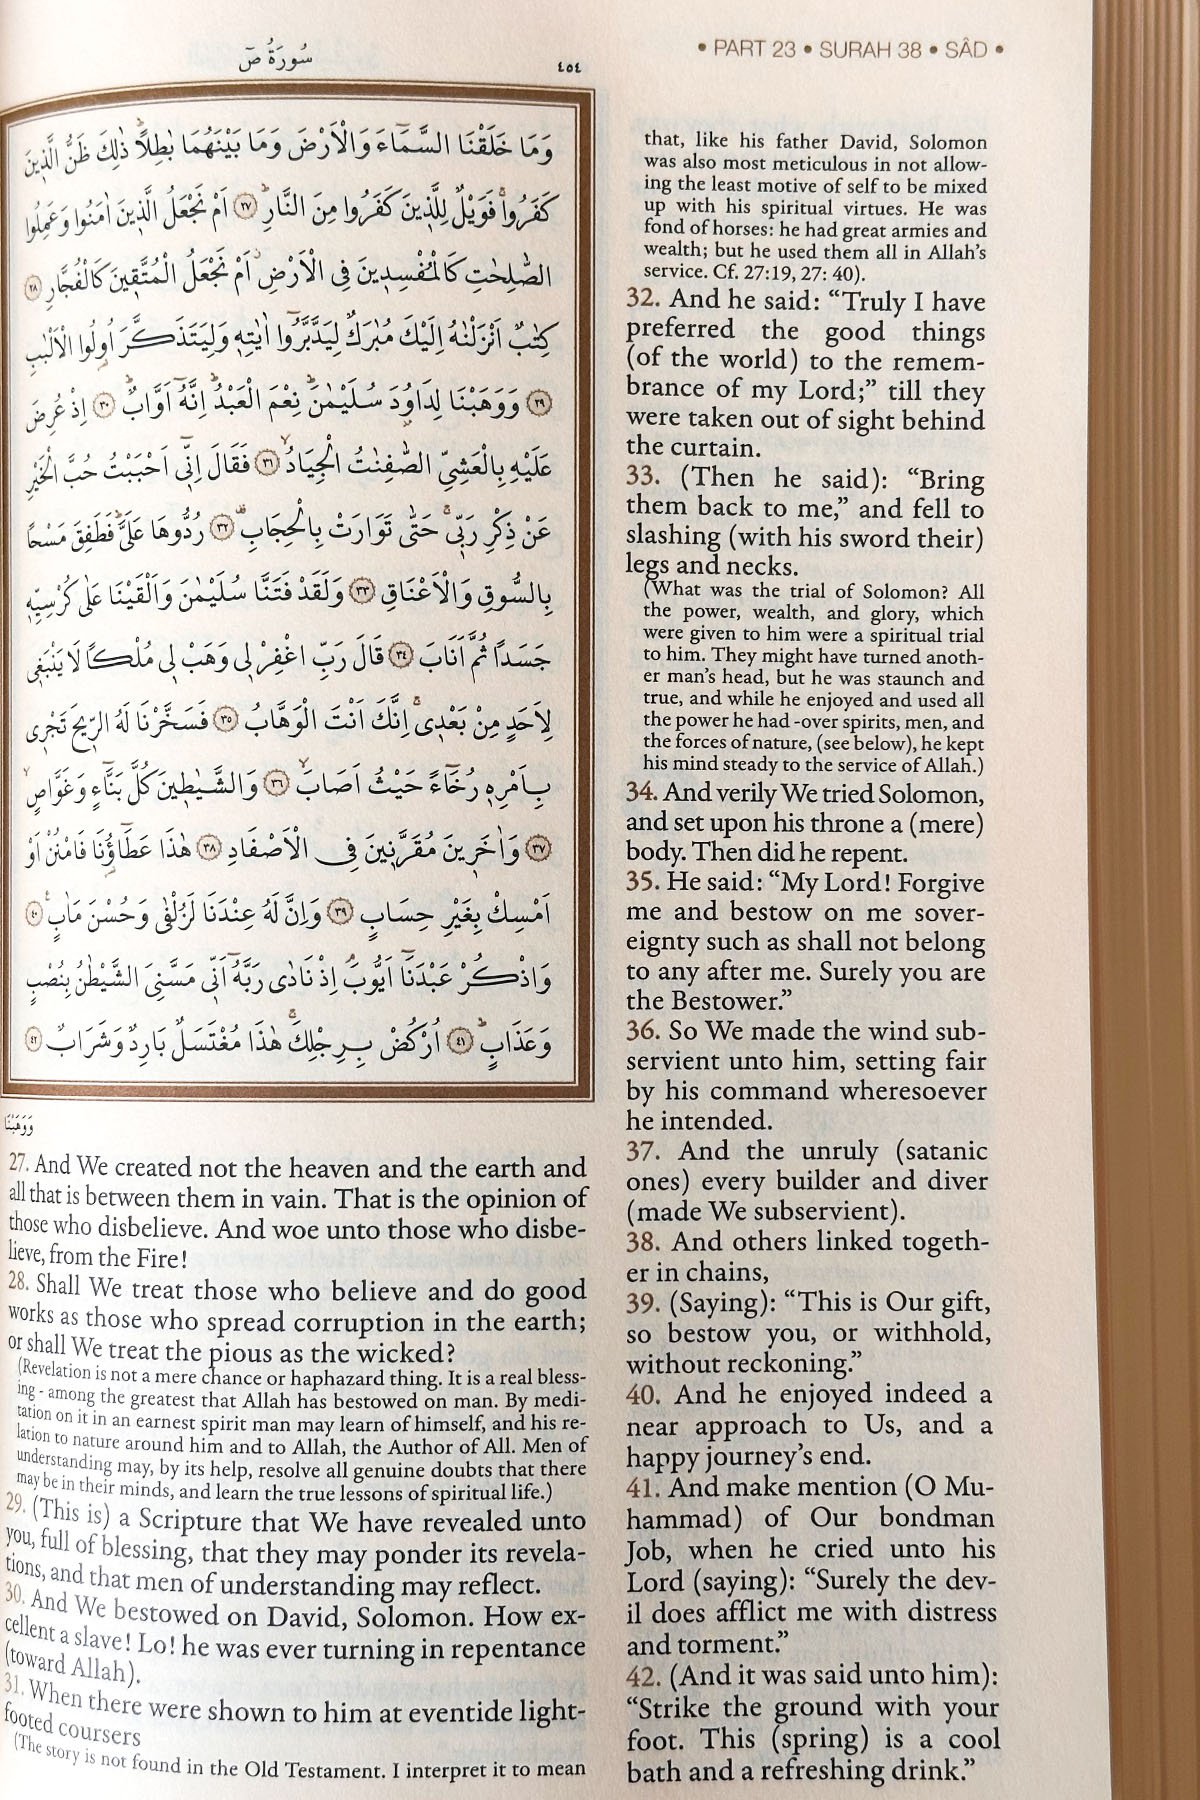 سُورَةُ صٓ
٤٥٤
• PART 23 • SURAH 38 • SÂD •
وَمَا خَلَقْنَا السَّمَٓاءَ وَالْاَرْضَ وَمَا بَيْنَهُمَا بَاطِلًاۜ ذٰلِكَ ظَنُّ الَّذ۪ينَ
كَفَرُواۚ فَوَيْلٌ لِلَّذ۪ينَ كَفَرُوا مِنَ النَّارِۜ ﴿٢٧﴾ اَمْ نَجْعَلُ الَّذ۪ينَ اٰمَنُوا وَعَمِلُوا
الصَّالِحَاتِ كَالْمُفْسِد۪ينَ فِي الْاَرْضِۘ اَمْ نَجْعَلُ الْمُتَّق۪ينَ كَالْفُجَّارِ ﴿٢٨﴾
كِتَابٌ اَنْزَلْنَاهُ اِلَيْكَ مُبَارَكٌ لِيَدَّبَّرُٓوا اٰيَاتِه۪ وَلِيَتَذَكَّرَ اُو۬لُوا الْاَلْبَابِ
﴿٢٩﴾ وَوَهَبْنَا لِدَاوُ۫دَ سُلَيْمٰنَۜ نِعْمَ الْعَبْدُۜ اِنَّهُٓ اَوَّابٌۜ ﴿٣٠﴾ اِذْ عُرِضَ
عَلَيْهِ بِالْعَشِيِّ الصَّافِنَاتُ الْجِيَادُۙ ﴿٣١﴾ فَقَالَ اِنّ۪ٓي اَحْبَبْتُ حُبَّ الْخَيْرِ
عَنْ ذِكْرِ رَبّ۪يۚ حَتّٰى تَوَارَتْ بِالْحِجَابِ۠ ﴿٣٢﴾ رُدُّوهَا عَلَيَّۜ فَطَفِقَ مَسْحًا
بِالسُّوقِ وَالْاَعْنَاقِ ﴿٣٣﴾ وَلَقَدْ فَتَنَّا سُلَيْمٰنَ وَاَلْقَيْنَا عَلٰى كُرْسِيِّه۪
جَسَدًا ثُمَّ اَنَابَ ﴿٣٤﴾ قَالَ رَبِّ اغْفِرْ ل۪ي وَهَبْ ل۪ي مُلْكًا لَا يَنْبَغ۪ي
لِاَحَدٍ مِنْ بَعْد۪يۚ اِنَّكَ اَنْتَ الْوَهَّابُ ﴿٣٥﴾ فَسَخَّرْنَا لَهُ الرّ۪يحَ تَجْر۪ي
بِاَمْرِه۪ رُخَٓاءً حَيْثُ اَصَابَۙ ﴿٣٦﴾ وَالشَّيَاط۪ينَ كُلَّ بَنَّٓاءٍ وَغَوَّاصٍۙ
﴿٣٧﴾ وَاٰخَر۪ينَ مُقَرَّن۪ينَ فِي الْاَصْفَادِ ﴿٣٨﴾ هٰذَا عَطَٓاؤُ۬نَا فَامْنُنْ اَوْ
اَمْسِكْ بِغَيْرِ حِسَابٍ ﴿٣٩﴾ وَاِنَّ لَهُ عِنْدَنَا لَزُلْفٰى وَحُسْنَ مَاٰبٍ۟ ﴿٤٠﴾
وَاذْكُرْ عَبْدَنَٓا اَيُّوبَۢ اِذْ نَادٰى رَبَّهُٓ اَنّ۪ي مَسَّنِيَ الشَّيْطَانُ بِنُصْبٍ
وَعَذَابٍۜ ﴿٤١﴾ اُرْكُضْ بِرِجْلِكَۚ هٰذَا مُغْتَسَلٌ بَارِدٌ وَشَرَابٌ ﴿٤٢﴾
وَوَهَبْنَا
27. And We created not the heaven and the earth and
all that is between them in vain. That is the opinion of
those who disbelieve. And woe unto those who disbe-
lieve, from the Fire!
28. Shall We treat those who believe and do good
works as those who spread corruption in the earth;
or shall We treat the pious as the wicked?
(Revelation is not a mere chance or haphazard thing. It is a real bless-
ing - among the greatest that Allah has bestowed on man. By medi-
tation on it in an earnest spirit man may learn of himself, and his re-
lation to nature around him and to Allah, the Author of All. Men of
understanding may, by its help, resolve all genuine doubts that there
may be in their minds, and learn the true lessons of spiritual life.)
29. (This is) a Scripture that We have revealed unto
you, full of blessing, that they may ponder its revela-
tions, and that men of understanding may reflect.
30. And We bestowed on David, Solomon. How ex-
cellent a slave! Lo! he was ever turning in repentance
(toward Allah).
31. When there were shown to him at eventide light-
footed coursers
(The story is not found in the Old Testament. I interpret it to mean
that, like his father David, Solomon
was also most meticulous in not allow-
ing the least motive of self to be mixed
up with his spiritual virtues. He was
fond of horses: he had great armies and
wealth; but he used them all in Allah's
service. Cf. 27:19, 27: 40).
32. And he said: “Truly I have
preferred the good things
(of the world) to the remem-
brance of my Lord;” till they
were taken out of sight behind
the curtain.
33. (Then he said): “Bring
them back to me,” and fell to
slashing (with his sword their)
legs and necks.
(What was the trial of Solomon? All
the power, wealth, and glory, which
were given to him were a spiritual trial
to him. They might have turned anoth-
er man's head, but he was staunch and
true, and while he enjoyed and used all
the power he had -over spirits, men, and
the forces of nature, (see below), he kept
his mind steady to the service of Allah.)
34. And verily We tried Solomon,
and set upon his throne a (mere)
body. Then did he repent.
35. He said: “My Lord! Forgive
me and bestow on me sover-
eignty such as shall not belong
to any after me. Surely you are
the Bestower.”
36. So We made the wind sub-
servient unto him, setting fair
by his command wheresoever
he intended.
37. And the unruly (satanic
ones) every builder and diver
(made We subservient).
38. And others linked togeth-
er in chains,
39. (Saying): “This is Our gift,
so bestow you, or withhold,
without reckoning.”
40. And he enjoyed indeed a
near approach to Us, and a
happy journey's end.
41. And make mention (O Mu-
hammad) of Our bondman
Job, when he cried unto his
Lord (saying): “Surely the dev-
il does afflict me with distress
and torment.”
42. (And it was said unto him):
“Strike the ground with your
foot. This (spring) is a cool
bath and a refreshing drink.”